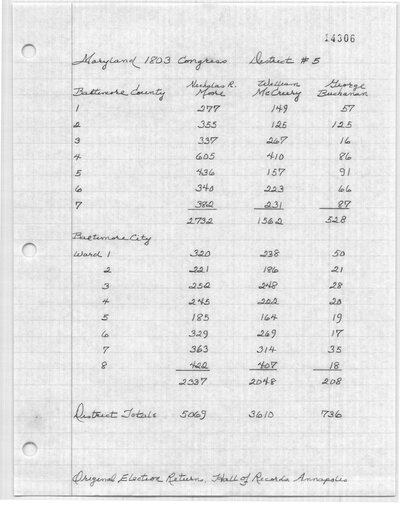 14306
Maryland 1803 Congress District # 5
Baltimore County Nicholas R. Moore William McCreery George Buchanan
1 277 149 57
2 355 125 125
3 337 267 16
4 605 410 86
5 436 157 91
6 340 223 66
7 382 231 87
2732 1562 528
Baltimore City
Ward 1 320 238 50
2 221 186 21
3 252 248 28
4 245 222 20
5 185 164 19
6 329 269 17
7 363 314 35
8 422 407 18
2337 2048 208
District Totals 5069 3610 736
Original Election Returns, Hall of Records Annapolis